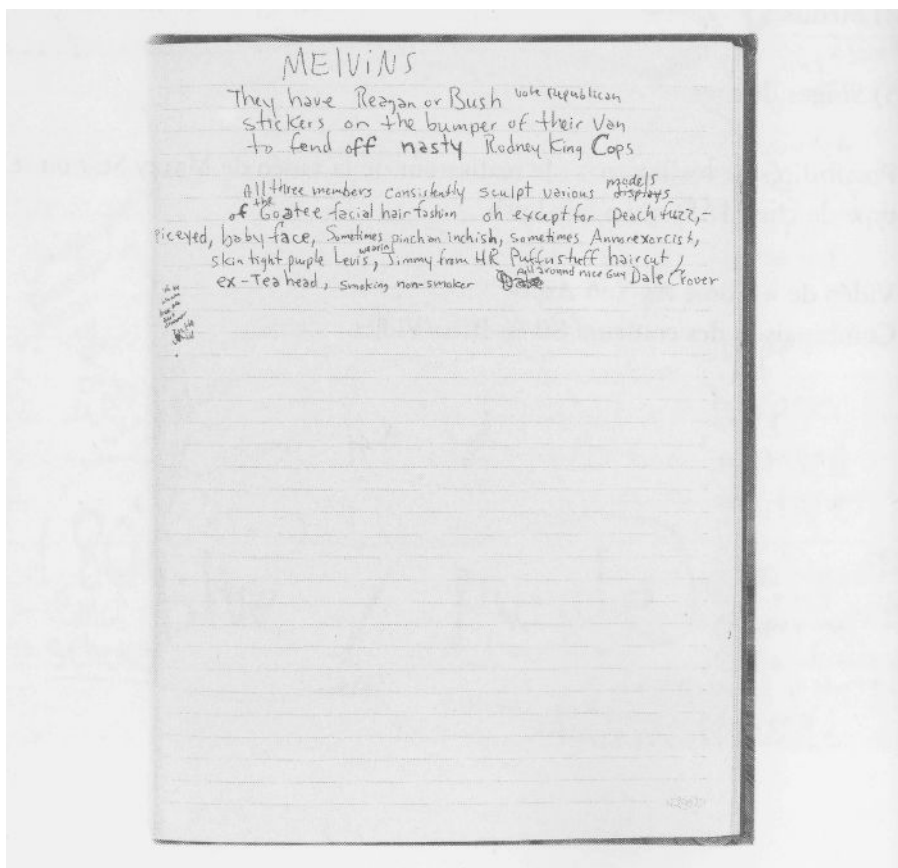 MElViNS
They have Reagan or Bush vote Republican
stickers on the bumper of their Van
to fend off nasty Rodney King Cops
All three members consistently sculpt various models displays
of the Goatee facial hair fashion oh except for peach fuzz,-
piceyed, baby face, Sometimes pinch an inchish, sometimes Annorexorcist,
skin tight purple Levis, wearing Jimmy from HR Puffnstuff haircut,
ex-Tea head, smoking non-smoker All around nice Guy Dale Crover